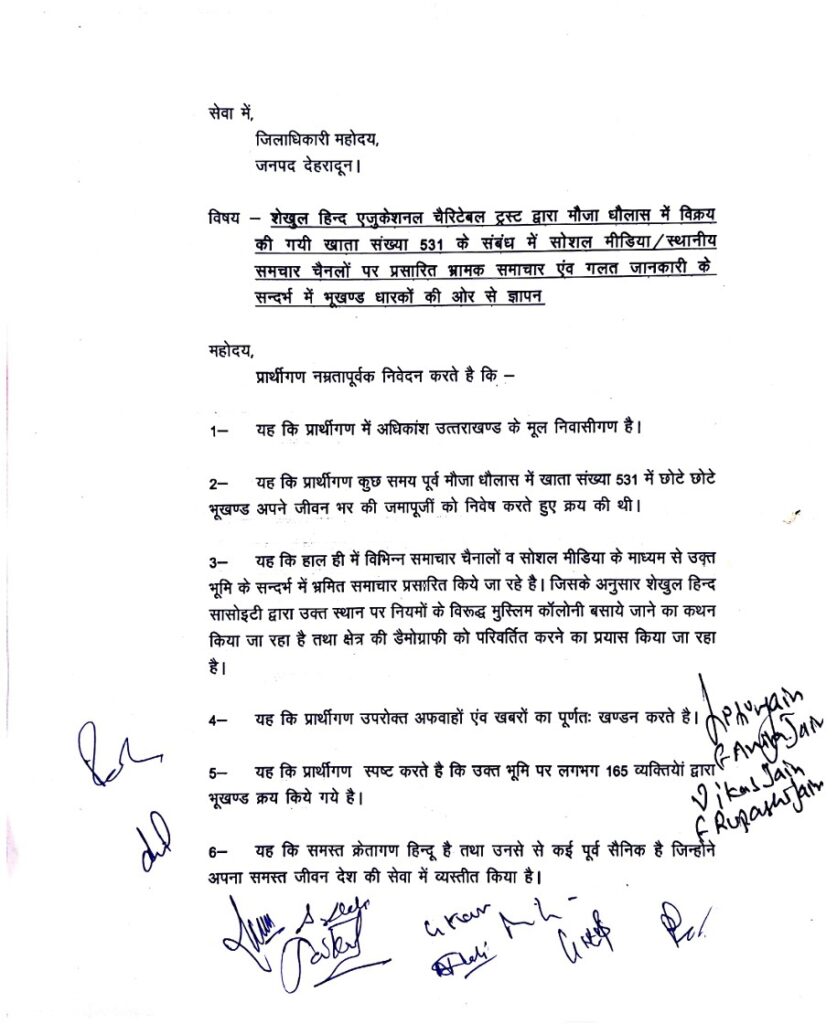 सेवा में,
जिलाधिकारी महोदय,
जनपद देहरादून।
विषय – शेखुल हिन्द एजुकेशनल चैरिटेबल ट्रस्ट द्वारा मौजा धौलास में विक्रय
की गयी खाता संख्या 531 के संबंध में सोशल मीडिया/स्थानीय
समचार चैनलों पर प्रसारित भ्रामक समाचार एंव गलत जानकारी के
सन्दर्भ में भूखण्ड धारकों की ओर से ज्ञापन
महोदय,
प्रार्थीगण नम्रतापूर्वक निवेदन करते है कि –
1– यह कि प्रार्थीगण में अधिकांश उत्तराखण्ड के मूल निवासीगण है।
2– यह कि प्रार्थीगण कुछ समय पूर्व मौजा धौलास में खाता संख्या 531 में छोटे छोटे
भूखण्ड अपने जीवन भर की जमापूंजीं को निवेष करते हुए क्रय की थी।
3– यह कि हाल ही में विभिन्न समाचार चैनालों व सोशल मीडिया के माध्यम से उक्त
भूमि के सन्दर्भ में भ्रमित समाचार प्रसारित किये जा रहे है। जिसके अनुसार शेखुल हिन्द
सासोइटी द्वारा उक्त स्थान पर नियमों के विरूद्ध मुस्लिम कॉलोनी बसाये जाने का कथन
किया जा रहा है तथा क्षेत्र की डैमोग्राफी को परिवर्तित करने का प्रयास किया जा रहा
है।
4– यह कि प्रार्थीगण उपरोक्त अफवाहों एंव खबरों का पूर्णतः खण्डन करते है।
5– यह कि प्रार्थीगण स्पष्ट करते है कि उक्त भूमि पर लगभग 165 व्यक्तियों द्वारा
भूखण्ड क्रय किये गये है।
6– यह कि समस्त क्रेतागण हिन्दू है तथा उनसे से कई पूर्व सैनिक है जिन्होने
अपना समस्त जीवन देश की सेवा में व्यस्तीत किया है।
Jain
Jain
Vikas Jain
Jain